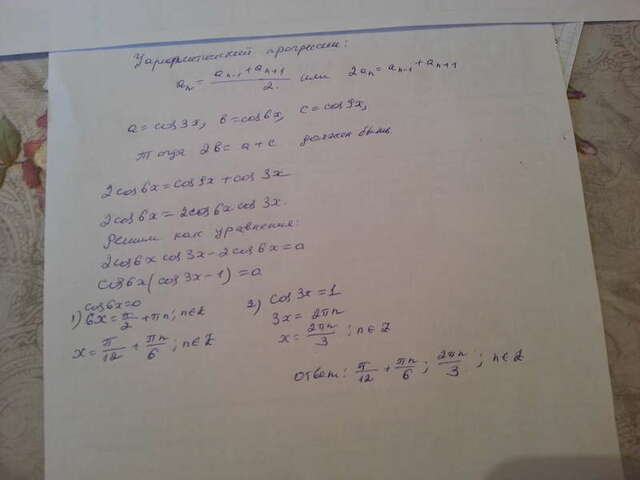 У арифметической прогрессии:
aₙ = (aₙ₋₁ + aₙ₊₁)/2 или 2aₙ = aₙ₋₁ + aₙ₊₁
a = cos3x, в = cos6x, c = cos9x,
Тогда 2в = a + c должен быть
2cos6x = cos9x + cos3x
2cos6x = 2cos6x cos3x.
Решим как уравнения:
2cos6x cos3x - 2cos6x = 0
cos6x(cos3x - 1) = 0
1) cos6x = 0
6x = π/2 + πn; n∈Z
x = π/12 + πn/6; n∈Z
2) cos3x = 1
3x = 2πn
x = 2πn/3; n∈Z
Ответ: π/12 + πn/6; 2πn/3; n∈Z